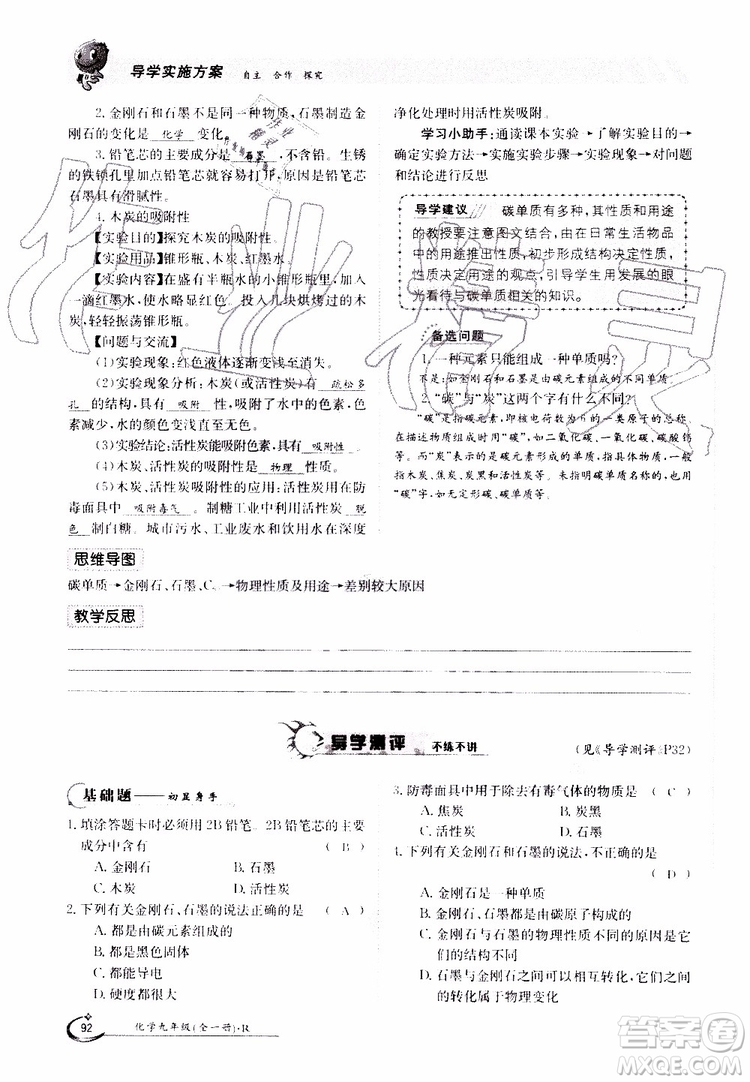 导学实施方案 自主 合作 探究
2. 金刚石和石墨不是同一种物质, 石墨制造金
刚石的变化是 化学 变化。
3. 铅笔芯的主要成分是 石墨 , 不含铅。生锈
的铁锁孔里加点铅笔芯可以打开, 原因是
石墨具有滑腻性。
4. 木炭的吸附性。
【实验目的】探究木炭的吸附性。
【实验用品】锥形瓶、木炭、红墨水。
【实验内容】在盛有半瓶水的小锥形瓶里, 加入
一滴红墨水, 使水略显红色。投入几块烘烤过的木
炭, 轻轻振荡锥形瓶。
【问题与交流】
(1)实验现象:红色液体逐渐变浅至消失。
(2)实验现象分析:木炭(或活性炭)具有 疏松多
孔 的结构, 能够 吸附 了水中的色素, 色素
的颜色变浅直至无色。
(3)实验结论:活性炭能吸附色素, 具有吸附性。
(4)木炭、活性炭吸附性是 物理 性质。
(5)木炭、活性炭吸附性的应用:活性炭在防毒
面具中 吸附毒气 。制糖工业中利用活性炭 脱
色 制白糖。城市污水、工业废水和饮用水在深度
净化处理时用活性炭吸附。
学习小助手:通读课本实验→了解实验目的→
确定实验方法→实施实验步骤→实验现象→对问题
和结论进行反思
导学建议 碳单质有多种,其性质和用途
的教授要注意图文结合,由在日常生活中
的用途推出性质,初步形成结构决定性质,
性质决定用途的观点,引导学生用发展的眼
光看待与碳单质相关的知识。
备选问题
1. 一种元素只能组成一种单质吗?
不是;如金刚石和石墨是由碳元素组成的不同的单质。
2. “碳”与“炭”这两个字有什么不同?
“碳”是元素名称, 即核电荷数为6的一类原子的总称,
在描述物质组成时用“碳”, 如二氧化碳、一氧化碳、碳酸钙
等。“炭”常用来描述由碳元素形成的单质, 如
木炭、焦炭、炭黑和活性炭等。未来描述单质名称的, 也可
用“碳”字, 如无定形碳、碳单质等。
思维导图
碳单质→金刚石、石墨、C →物理性质及用途→差别较大原因
教学反思
导学测评 不练不讲
(见《导学测评》P32)
基础题——初显身手
1. 填涂答题卡时必须用2B铅笔。2B铅笔芯的主要
成分中含有 ( B )
A. 金刚石 B. 石墨
C. 木炭 D. 活性炭
2. 下列有关金刚石、石墨的说法正确的是 ( A )
A. 都是由碳元素组成的
B. 都是黑色固体
C. 都能导电
D. 硬度都很大
3. 防毒面具中用于除去有毒气体的物质是 ( C )
A. 焦炭 B. 炭黑
C. 活性炭 D. 木炭
4. 下列有关金刚石和石墨的说法,不正确的是
( D )
A. 金刚石是一种单质
B. 金刚石、石墨都是由碳原子构成的
C. 金刚石与石墨的物理性质不同的原因是它们
的结构不同
D. 石墨与金刚石之间可以相互转化,它们之间
的转化属于物理变化
92 化学九年级(全一册)·R